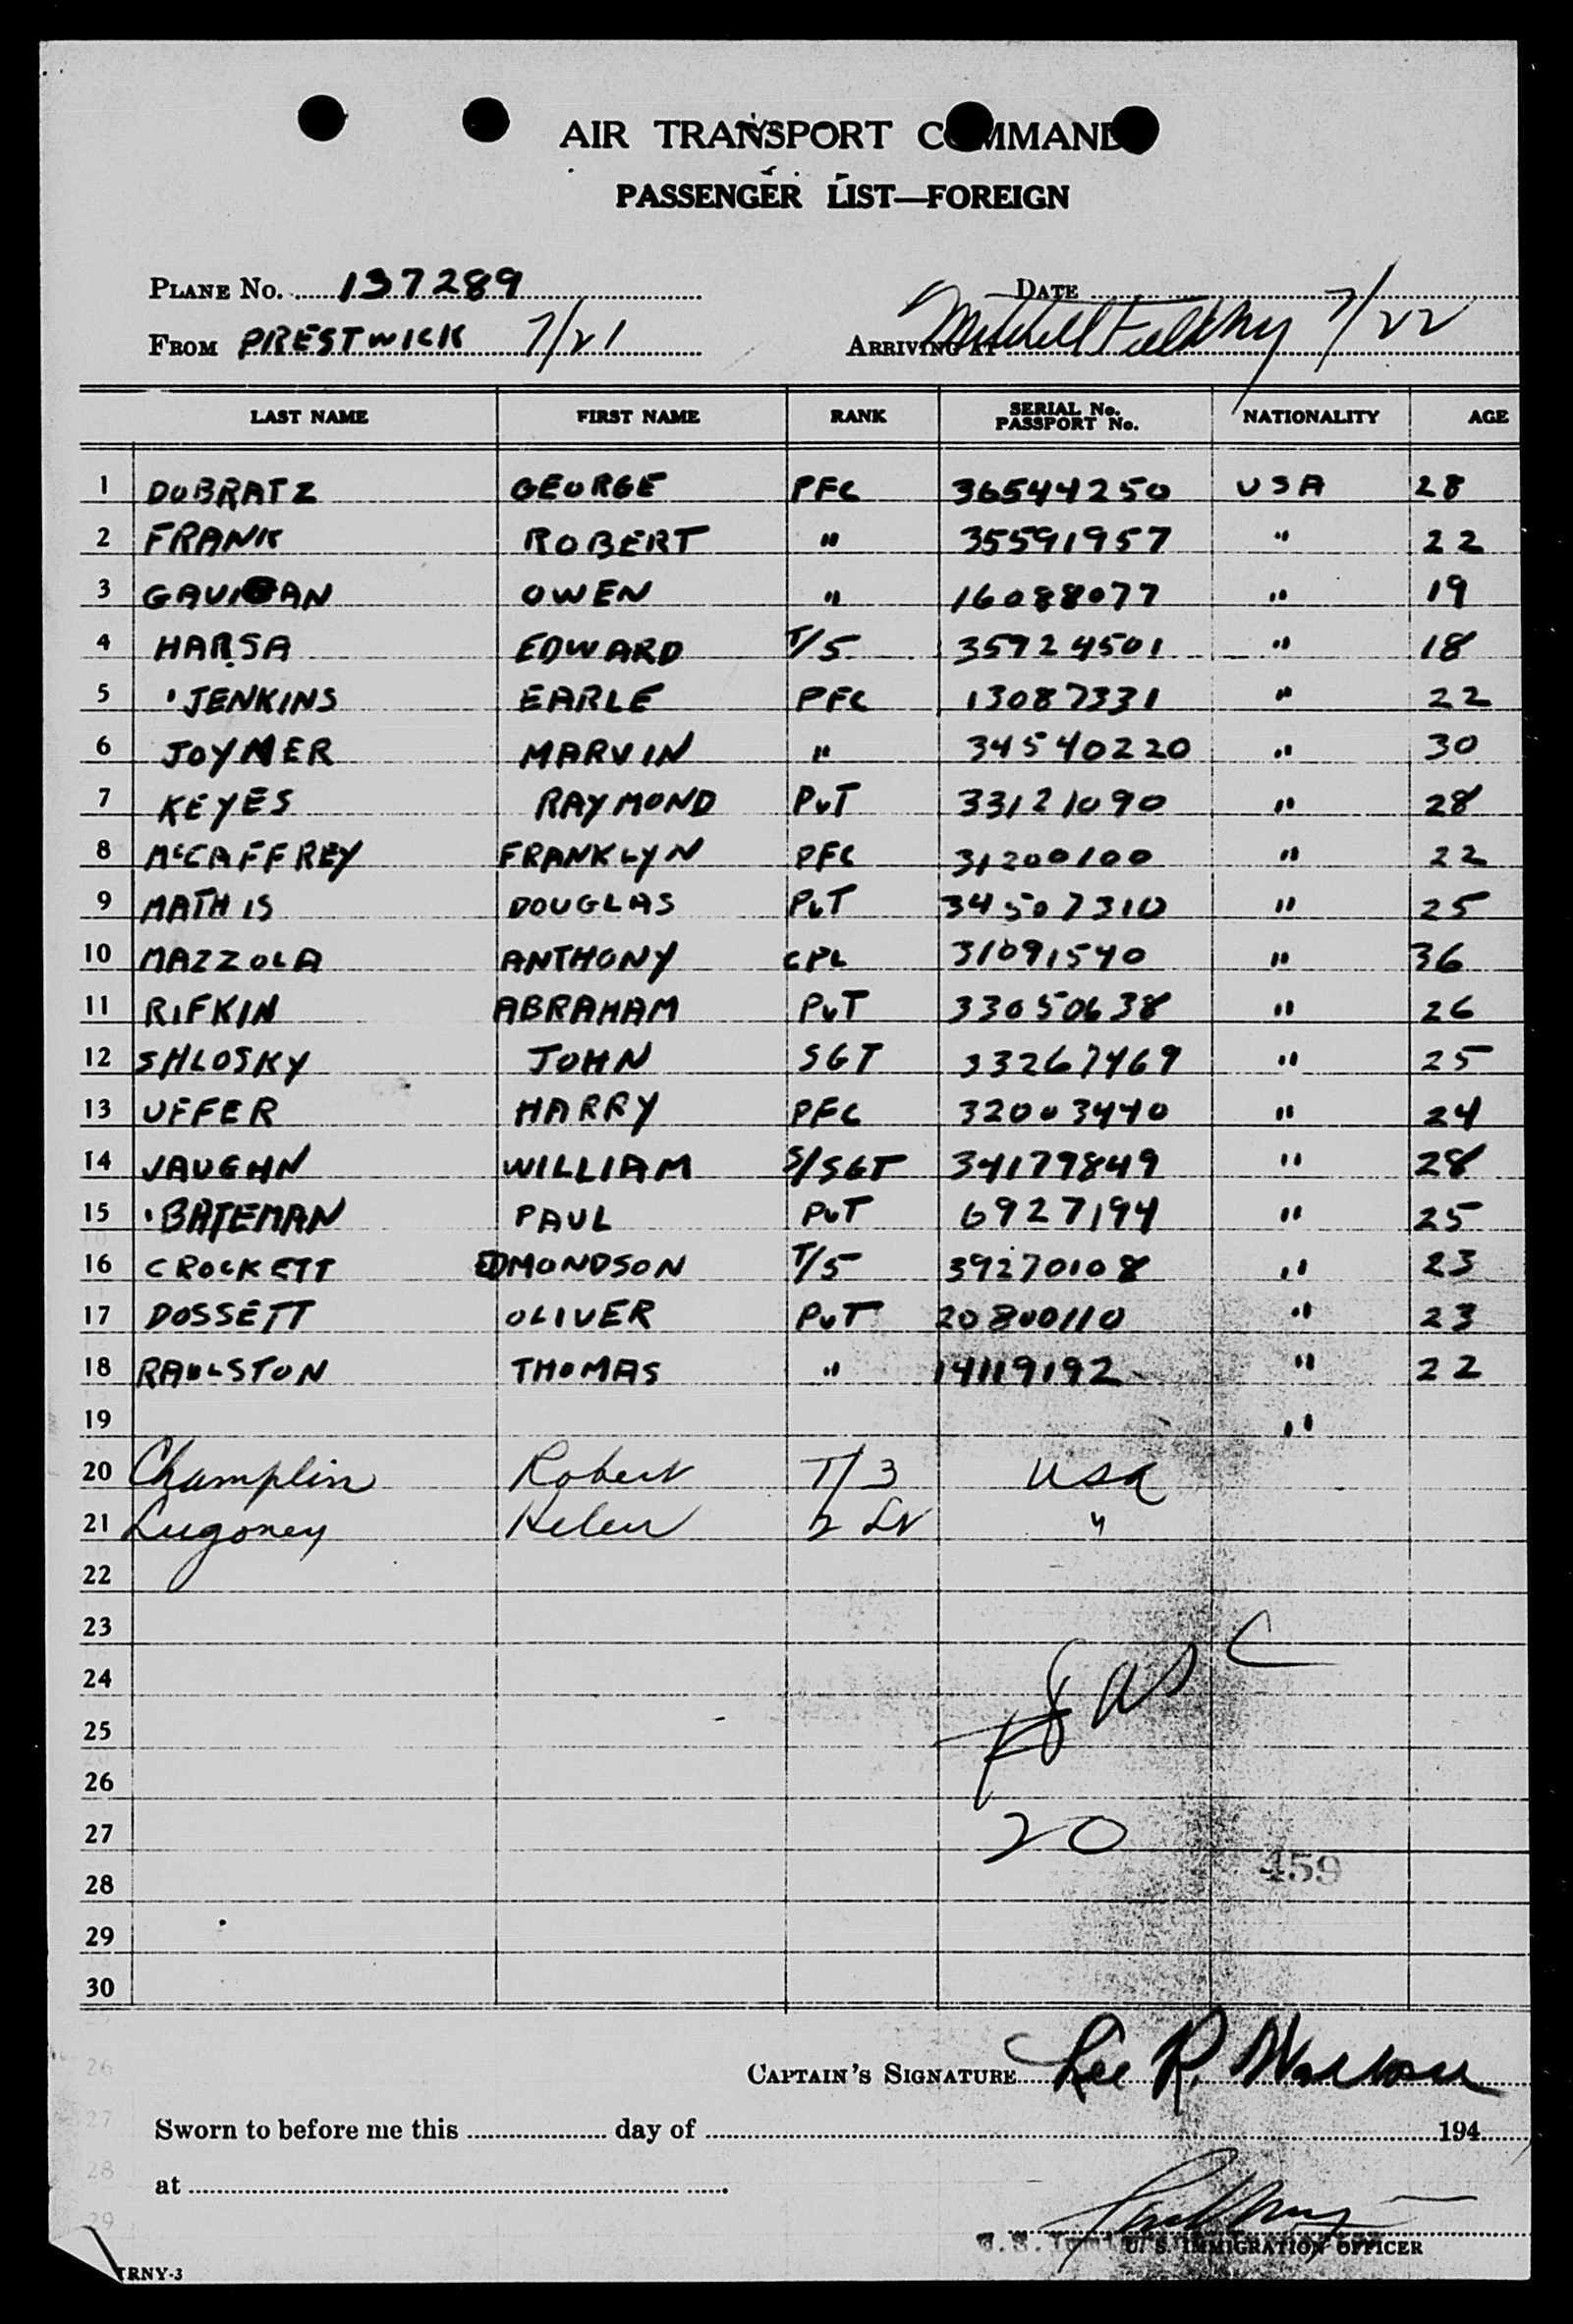 AIR TRANSPORT COMMAND
PASSENGER LIST—FOREIGN
PLANE No. 137289 DATE
FROM PRESTWICK 7/21 ARRIVING AT Mitchell Field NY 7/22
LAST NAME FIRST NAME RANK SERIAL No. PASSPORT No. NATIONALITY AGE
1 DOBRATZ GEORGE PFC 36544250 USA 28
2 FRANK ROBERT " 35591957 " 22
3 GAVIGAN OWEN " 16088077 " 19
4 HARSA EDWARD T/5 35924501 " 18
5 JENKINS EARLE PFC 13087331 " 22
6 JOYNER MARVIN " 34540220 " 30
7 KEYES RAYMOND PVT 33121090 " 28
8 McCAFFREY FRANKLYN PFC 31200100 " 22
9 MATHIS DOUGLAS PVT 34507310 " 25
10 MAZZOLA ANTHONY CPL 31091540 " 36
11 RIFKIN ABRAHAM PVT 33050638 " 26
12 SHLOSKY JOHN SGT 33267469 " 25
13 UFFER HARRY PFC 32003440 " 24
14 VAUGHN WILLIAM S/SGT 34179849 " 28
15 BATEMAN PAUL PVT 6927194 " 25
16 CROCKETT EDMONDSON T/5 39270108 " 23
17 DOSSETT OLIVER PVT 20800110 " 23
18 RAULSTON THOMAS " 14119192 " 22
19 "
20 Champlin Robert T/3 USA
21 Lugoney Helen 2 Lt "
22
23
24
25
26
27 20
28 459
29
30
CAPTAIN'S SIGNATURE Lee R.
Sworn to before me this day of 194
at
U. S. IMMIGRATION OFFICER
TRNY-3